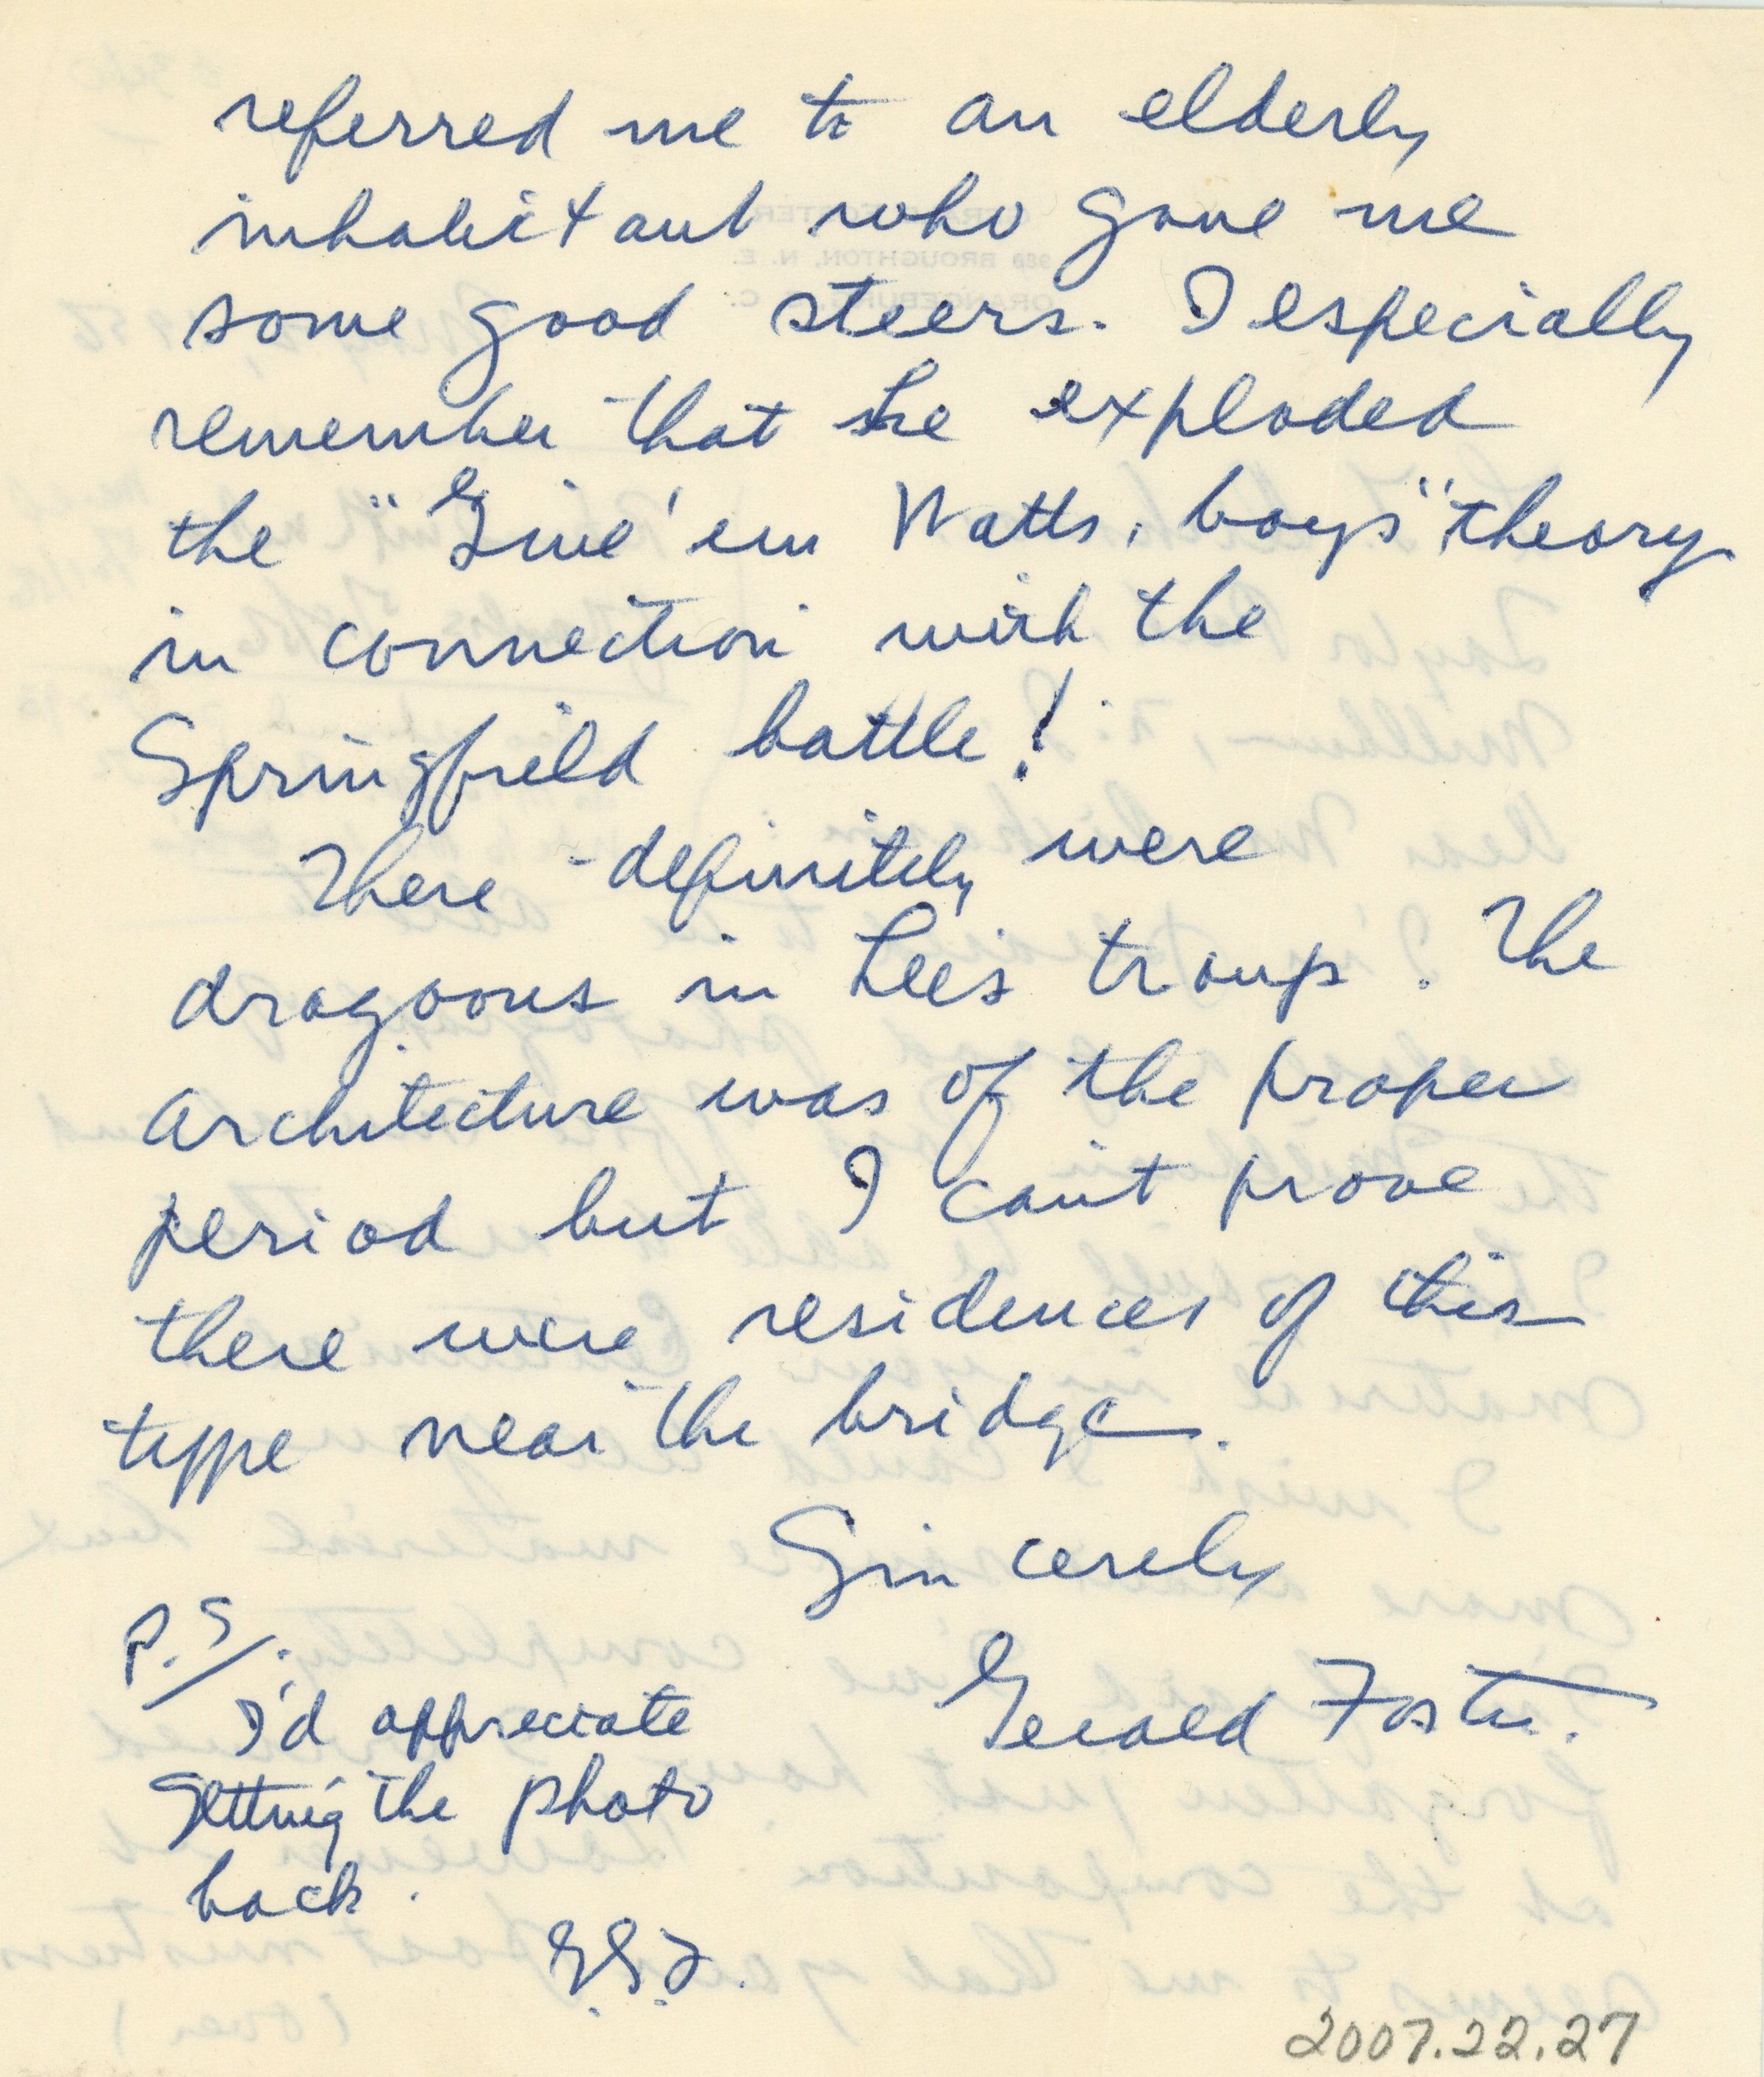 referred me to an elderly
inhabitant who gave me
some good steers. I especially
remember that he exploded
the "Give 'em Watts, boys" theory
in connection with the
Springfield battle!
There definitely were
dragoons in Lee's troup. The
architecture was of the proper
period but I can't prove
there were residences of this
type near the bridge.
Sincerely
Gerald Foster.
P.S.
I'd appreciate
getting the photo
back.
G.S.F.
2007.22.27